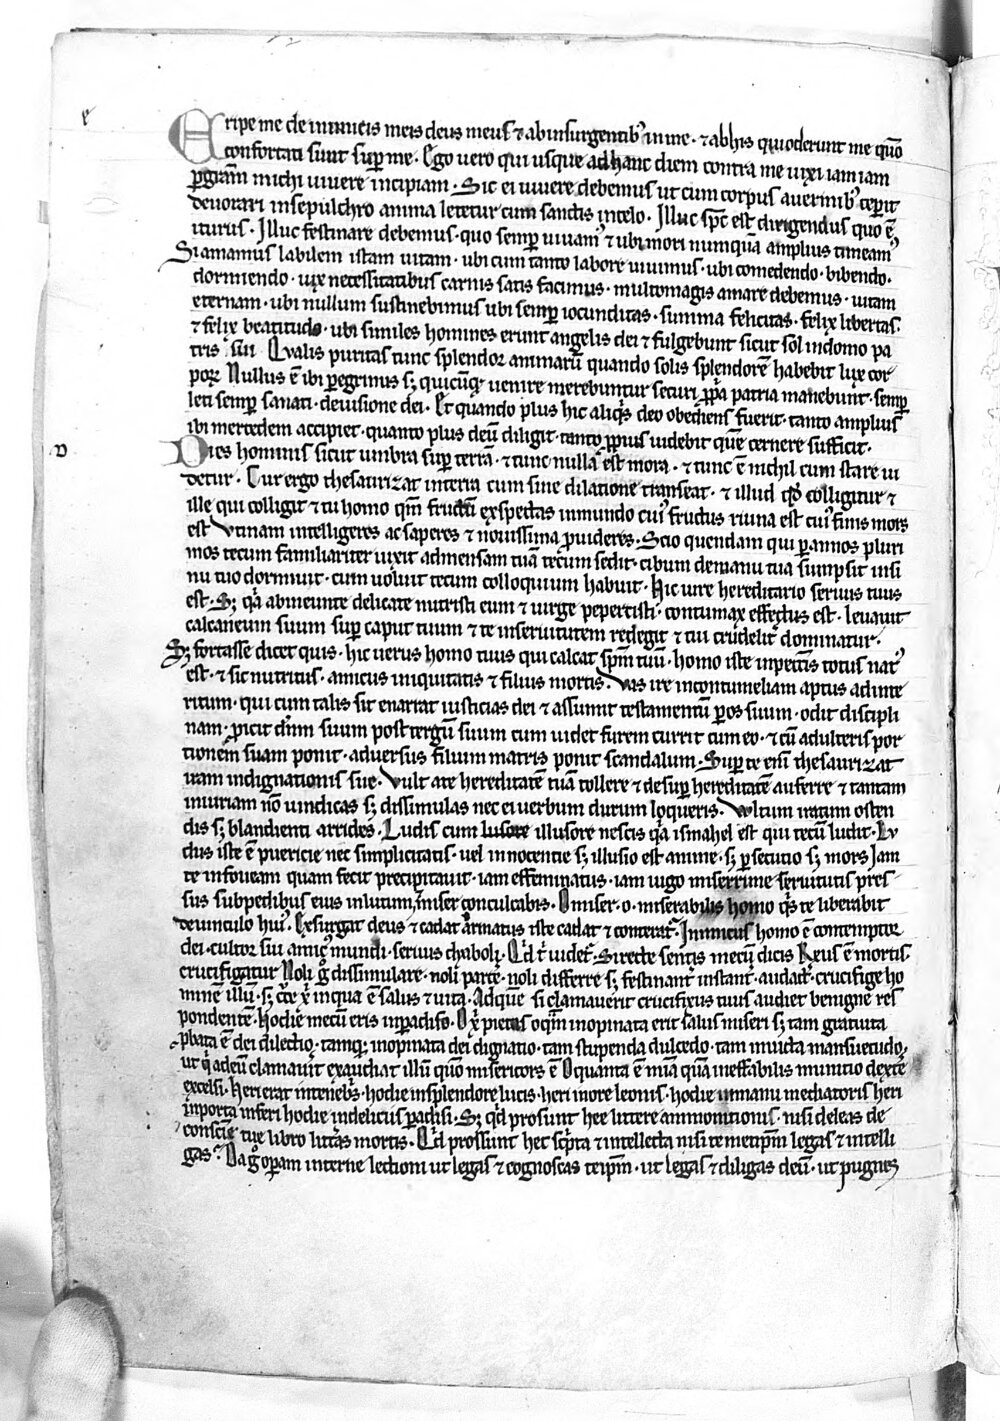 e
Eripe me de inimicis meis deus meus ⁊ ab insurgentib' in me · ⁊ ab his qui oderunt me quō
confortati sunt suꝑ me · Ego vero qui usque ad hanc diem contra me uixi iam iam
ꝑ gīam michi uiuere incipiam · Sic ei uiuere debemus ut cum corpus a uermib' ceperit
deuorari in sepulchro anima letetur cum sanctis in celo · Illuc spc est dirigendus quo ē
iturus · Illuc festinare debemus · quo semꝑ uiuam' ⁊ ubi mori numquā amplius timeam'
Si amamus labilem istam uitam · ubi cum tanto labore uiuimus · ubi comedendo · bibendo ·
dormiendo · uix necessitatibus carnis satis facimus · multo magis amare debemus · uitam
eternam · ubi nullum sustinebimus ubi semꝑ iocunditas · summa felicitas · felix libertas ·
⁊ felix beatitudo · ubi similes homines erunt angelis dei ⁊ fulgebunt sicut sol in domo pa
tris sui Qualis puritas tunc splendor animarū quando solis splendorē habebit lux cor
poꝝ Nullus ē ibi ꝑegrinus sꝫ quicūqꝫ uenire merebuntur securi ꝓpa patria manebunt · semꝑ
leti semꝑ sanati · de uisione dei · Et quando plus hic aliqs deo obediens fuerit · tanto amplius
ibi mercedem accipiet · quanto plus deū diligit · tanto ꝓpius uidebit quē cernere sufficit ·
D
Dies hominis sicut umbra suꝑ terrā · ⁊ tunc nulla est mora · ⁊ tunc ē nichil cum stare ui
detur · Cur ergo thesaurizat in terra cum sine dilatione transeat · ⁊ illud qd colligitur ⁊
ille qui colligit ⁊ tu homo qm fructū exspectas in mundo cui' fructus ruina est cui' finis mors
est Vtinam intelligeres ac saperes ⁊ nouissima ꝓuideres · Scio quendam qui ꝑ annos pluri
mos tecum familiariter uixit ad mensam tuā tecum sedit · cibum de manu tua sumpsit in si
nu tuo dormiuit · cum uoluit tecum colloquium habuit · Hic iure hereditario seruus tuus
est · Sꝫ qa ab ineunte delicate nutristi eum ⁊ uirge pepercisti · contumax effectus est · leuauit
calcaneum suum suꝑ caput tuum ⁊ te in seruitutem redegit ⁊ tui crudelit' dominatur ·
Sꝫ fortasse dicet quis · hic uetus homo tuus qui calcat spm tuū · homo iste in peccatis totus nat'
est · ⁊ sic nutritus · amicus iniquitatis ⁊ filius mortis · Vas ire in contumeliam aptus ad inte
ritum · qui cum talis sit enarrat iusticias dei ⁊ assumit testamentū ꝑ os suum · odit discipli
nam · ꝓicit dnm suum post tergū suum cum uidet furem currit cum eo · ⁊ cū adulteris por
tionem suam ponit · aduersus filium matris ponit scandalum · Suꝑ te eni thesaurizat
iram indignationis sue · Vult a te hereditatē tuā tollere ⁊ desuꝑ hereditatē auferre ⁊ tantam
iniuriam nō uindicas sꝫ dissimulas nec ei uerbum durum loqueris · Vultum iratum osten
dis sꝫ blandienti arrides · Ludis cum lusore illusore nescis qa ismahel est qui tecū ludit · Lu
dus iste ē puericie nec simplicitatis · uel innocentie sꝫ illusio est anime · sꝫ ꝑsecutio sꝫ mors Iam
te in foueam quam fecit precipitauit · iam effeminatus · iam iugo miserrime seruitutis pres
sus sub pedibus eius in lutum miser conculcabis · O miser · o · miserabilis homo qs te liberabit
de uinculo hui' · Exsurgat deus ⁊ cadat armatus iste cadat ⁊ conterat' · Inimicus homo ē contemptor
dei · cultor sui amic' mundi · seruus diaboli · Qd t' uidet' · Si recte sentis mecū dicis Reus ē mortis ·
crucifigatur Noli g dissimulare · noli parce' · noli differre sꝫ festinant' instant' · audact' · crucifige ho
minē illū · sꝫ c'te x' in qua ē salus ⁊ uita · Ad quē si clamauerit crucifixus tuus audiet benigne res
pondentē · Hodie mecū eris in paradiso · O x' pietas o qm inopinata erit salus miseri sꝫ tam gratuita
ꝓbata ē dei dilectio · tamqꝫ inopinata dei dignatio · tam stupenda dulcedo · tam inuicta mansuetudo ·
ut q ad eū clamauit exaudiat illū quō misericors ē O quanta ē mia quā ineffabilis munitio dextē
excelsi · Heri erat in tenebs · hodie in splendore lucis · heri in ore leonis · hodie in manu mediatoris heri
in porta inferi hodie in deliciis paradisi · Sꝫ qd prosunt hee littere ammonitionis · nisi deleas de
conscie tue libro litt'as mortis · Qd prossunt hec scpta ⁊ intellecta nisi temetipm legas ⁊ intelli
gas · Da g oꝑam interne lectioni ut legas ⁊ cognoscas teipm · ut legas ⁊ diligas deū · ut pugnes